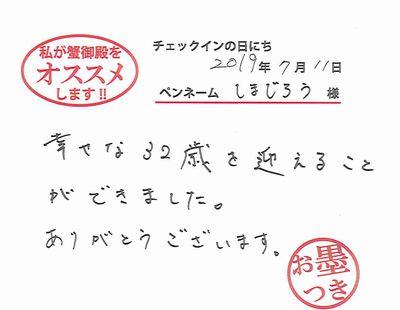 私が蟹御殿を
オススメ
します!!
チェックインの日にち
2019年7月11日
ペンネーム しまじろう 様
幸せな32歳を迎えること
ができました。
ありがとうございます。
お墨
つき